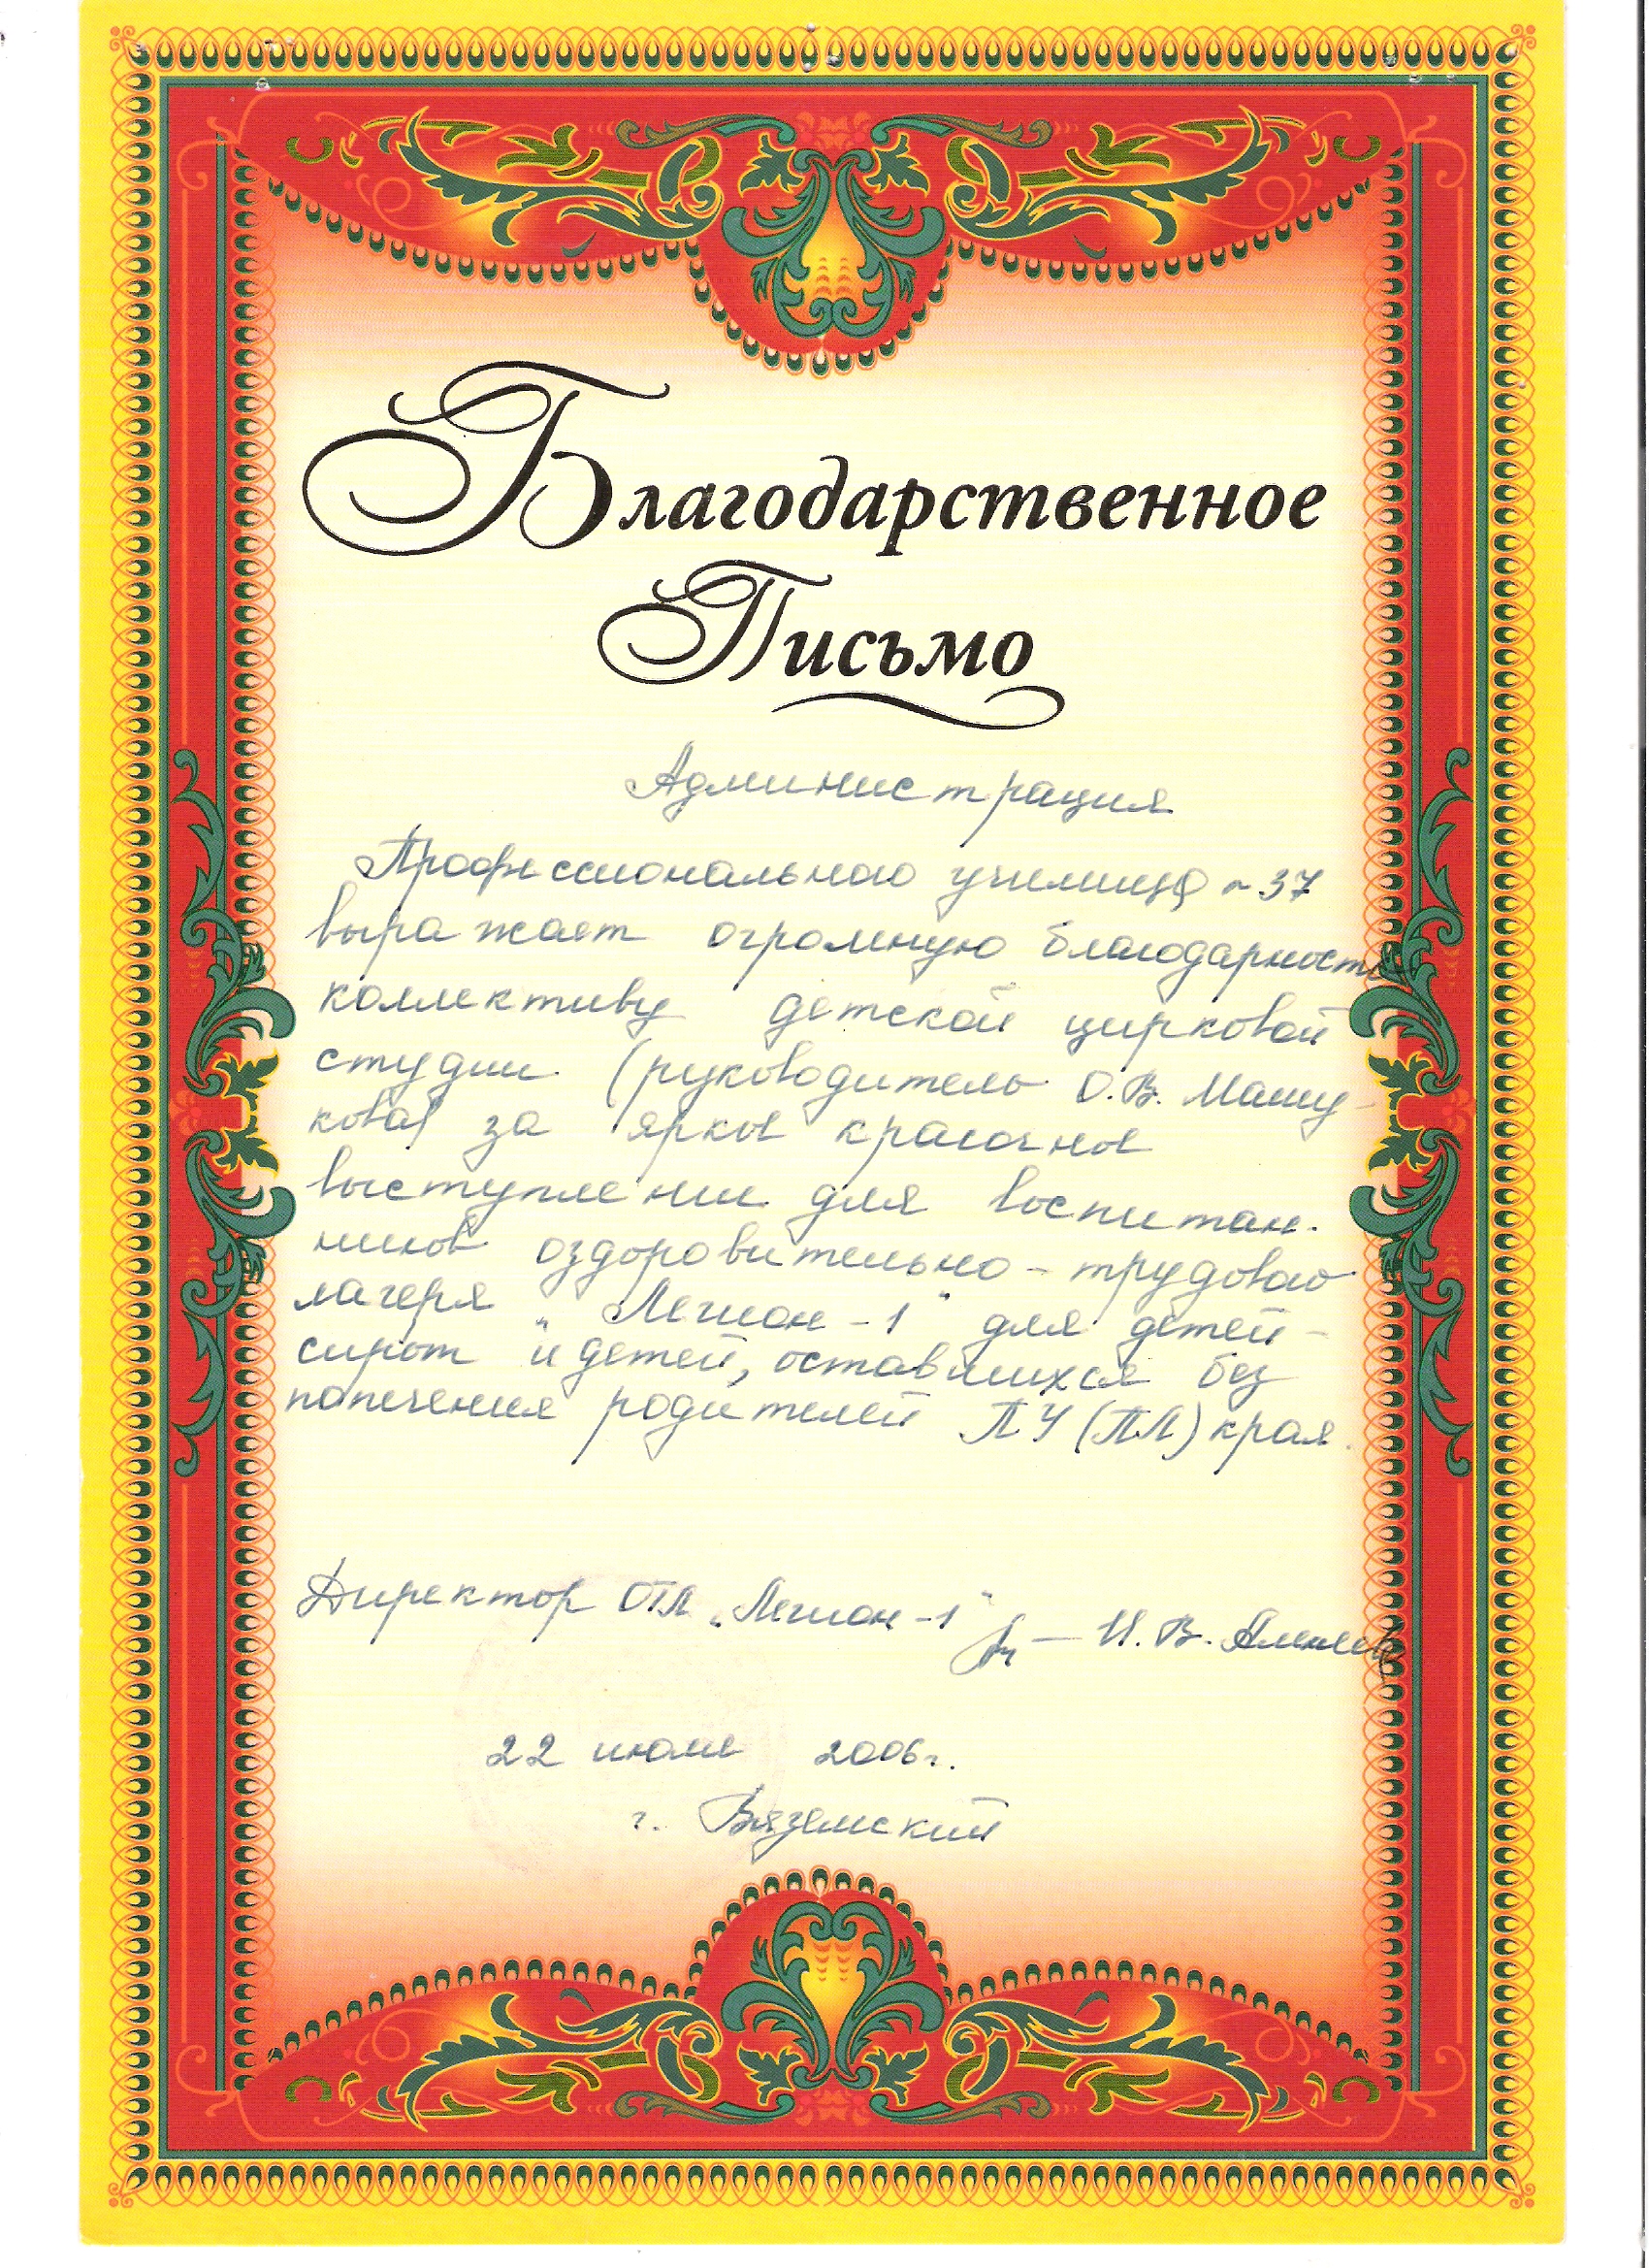 Благодарственное
Письмо
Администрация
Профессионального училища № 37
выражает огромную благодарность
коллективу детской цирковой
студии (руководитель О.В. Машу-
кова) за яркое красочное
выступление для воспитан-
ников оздоровительно-трудового
лагеря "Легион-1" для детей-
сирот и детей, оставшихся без
попечения родителей ПУ (ПЛ) края.
Директор ОТЛ "Легион-1" И.В. Алексеев
22 июля 2006г.
г. Вяземский